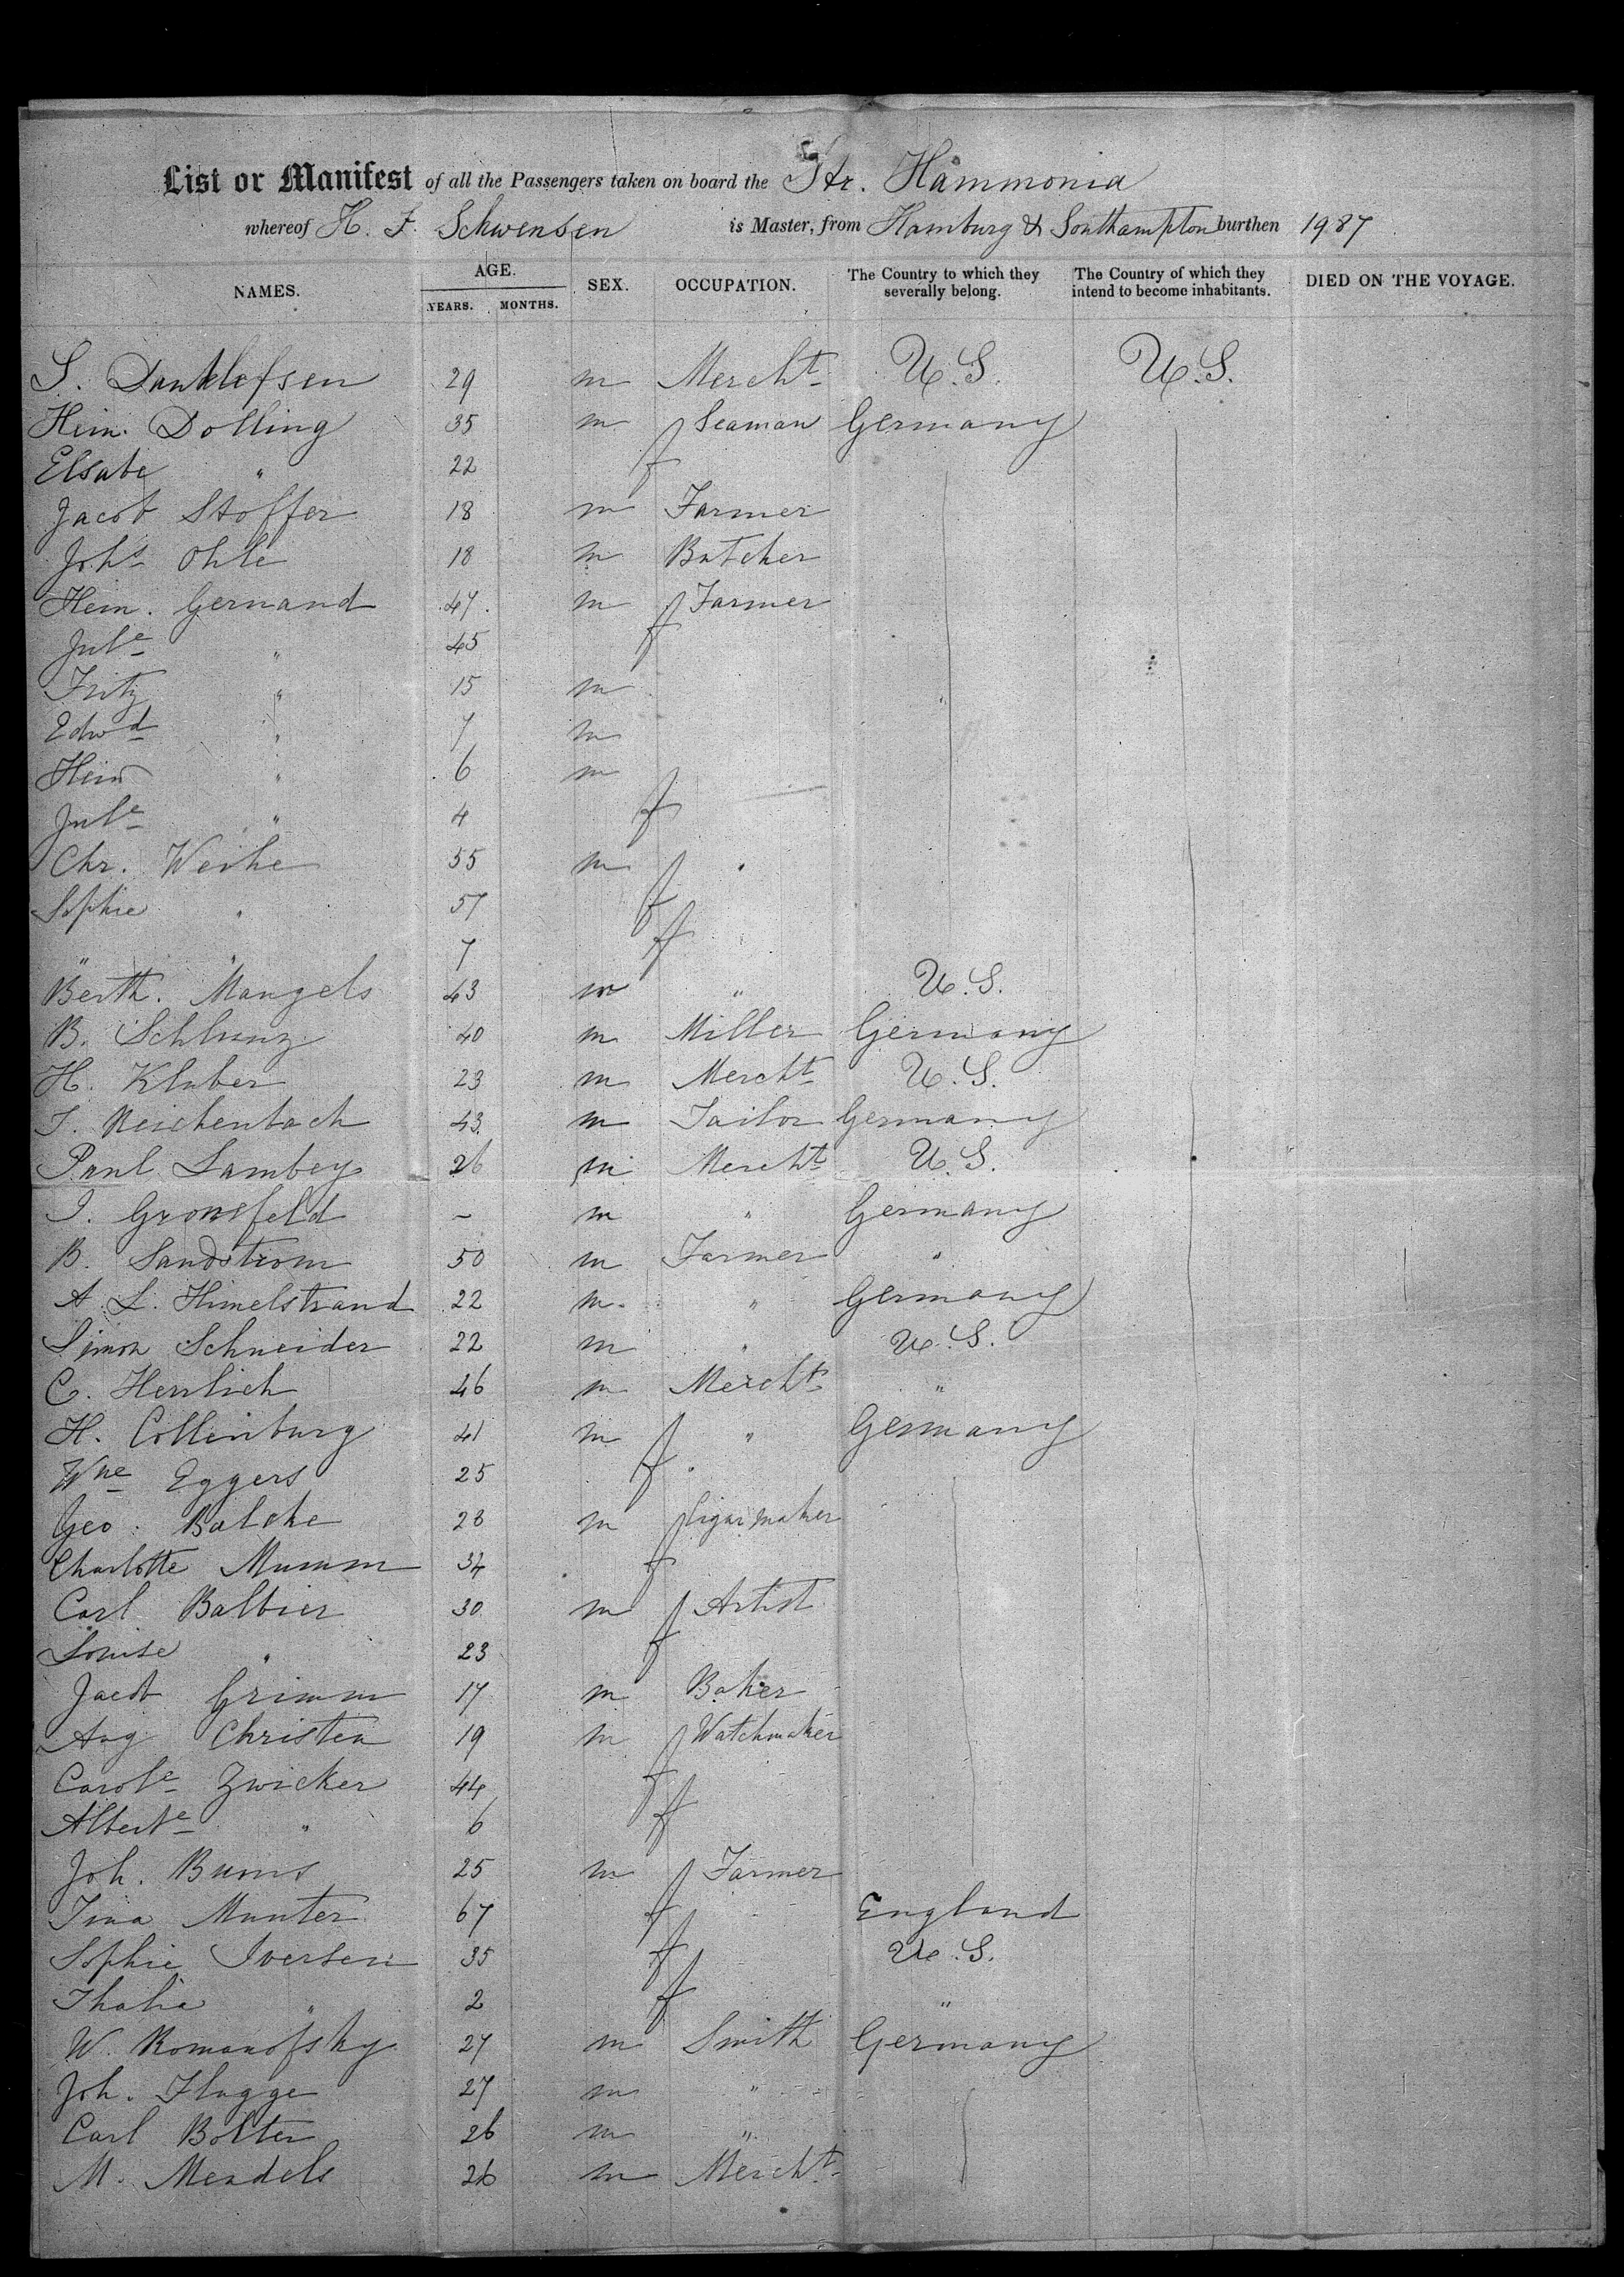 List or Manifest of all the Passengers taken on board the Str. Hammonia
whereof H. F. Schwensen is Master, from Hamburg & Southampton burthen 1987
NAMES. AGE. SEX. OCCUPATION. The Country to which they severally belong. The Country of which they intend to become inhabitants. DIED ON THE VOYAGE.
YEARS. MONTHS.
S. Danklefsen 29 m Mercht U.S. U.S.
Hein. Dolling 35 m Seaman Germany
Elsabe " 22 f
Jacob Stoffer 18 m Farmer
Johs Ohle 18 m Butcher
Hein. Gernand 47 m Farmer
Jule " 45 f
Fritz " 15 m
Edwd " 7 m
Hein " 6 m
Jule " 4 f
Chr. Weihe 55 m "
Sophie " 57 f
" " 7 f
Berth. Mangels 43 m " U.S.
B. Schlunz 40 m Miller Germany
H. Kluber 23 m Mercht U.S.
J. Reichenbach 43 m Tailor Germany
Paul Lambey 26 m Mercht U.S.
I. Gronsfeld - m " Germany
B. Sandstrom 50 m Farmer "
A. L. Himelstrand 22 m " Germany
Simon Schneider 22 m " U.S.
C. Herrlich 46 m Mercht "
H. Collenburg 41 m " Germany
Wne Eggers 25 f
Geo. Balcke 28 m Cigar maker
Charlotte Mumm 34 f
Carl Balbier 30 m Artist
Louise " 23 f
Jacob Grimm 17 m Baker
Aug Christen 19 m Watchmaker
Carole Zwicker 44 f
Alberte " 6 f
Joh. Bums 25 m Farmer
Tina Munter 67 f England
Sophie Iversen 35 f U.S.
Thalia " 2 f "
W. Romanofsky 27 m Smith Germany
Joh. Flugge 27 m "
Carl Bolten 26 m "
M. Mendels 26 m Mercht